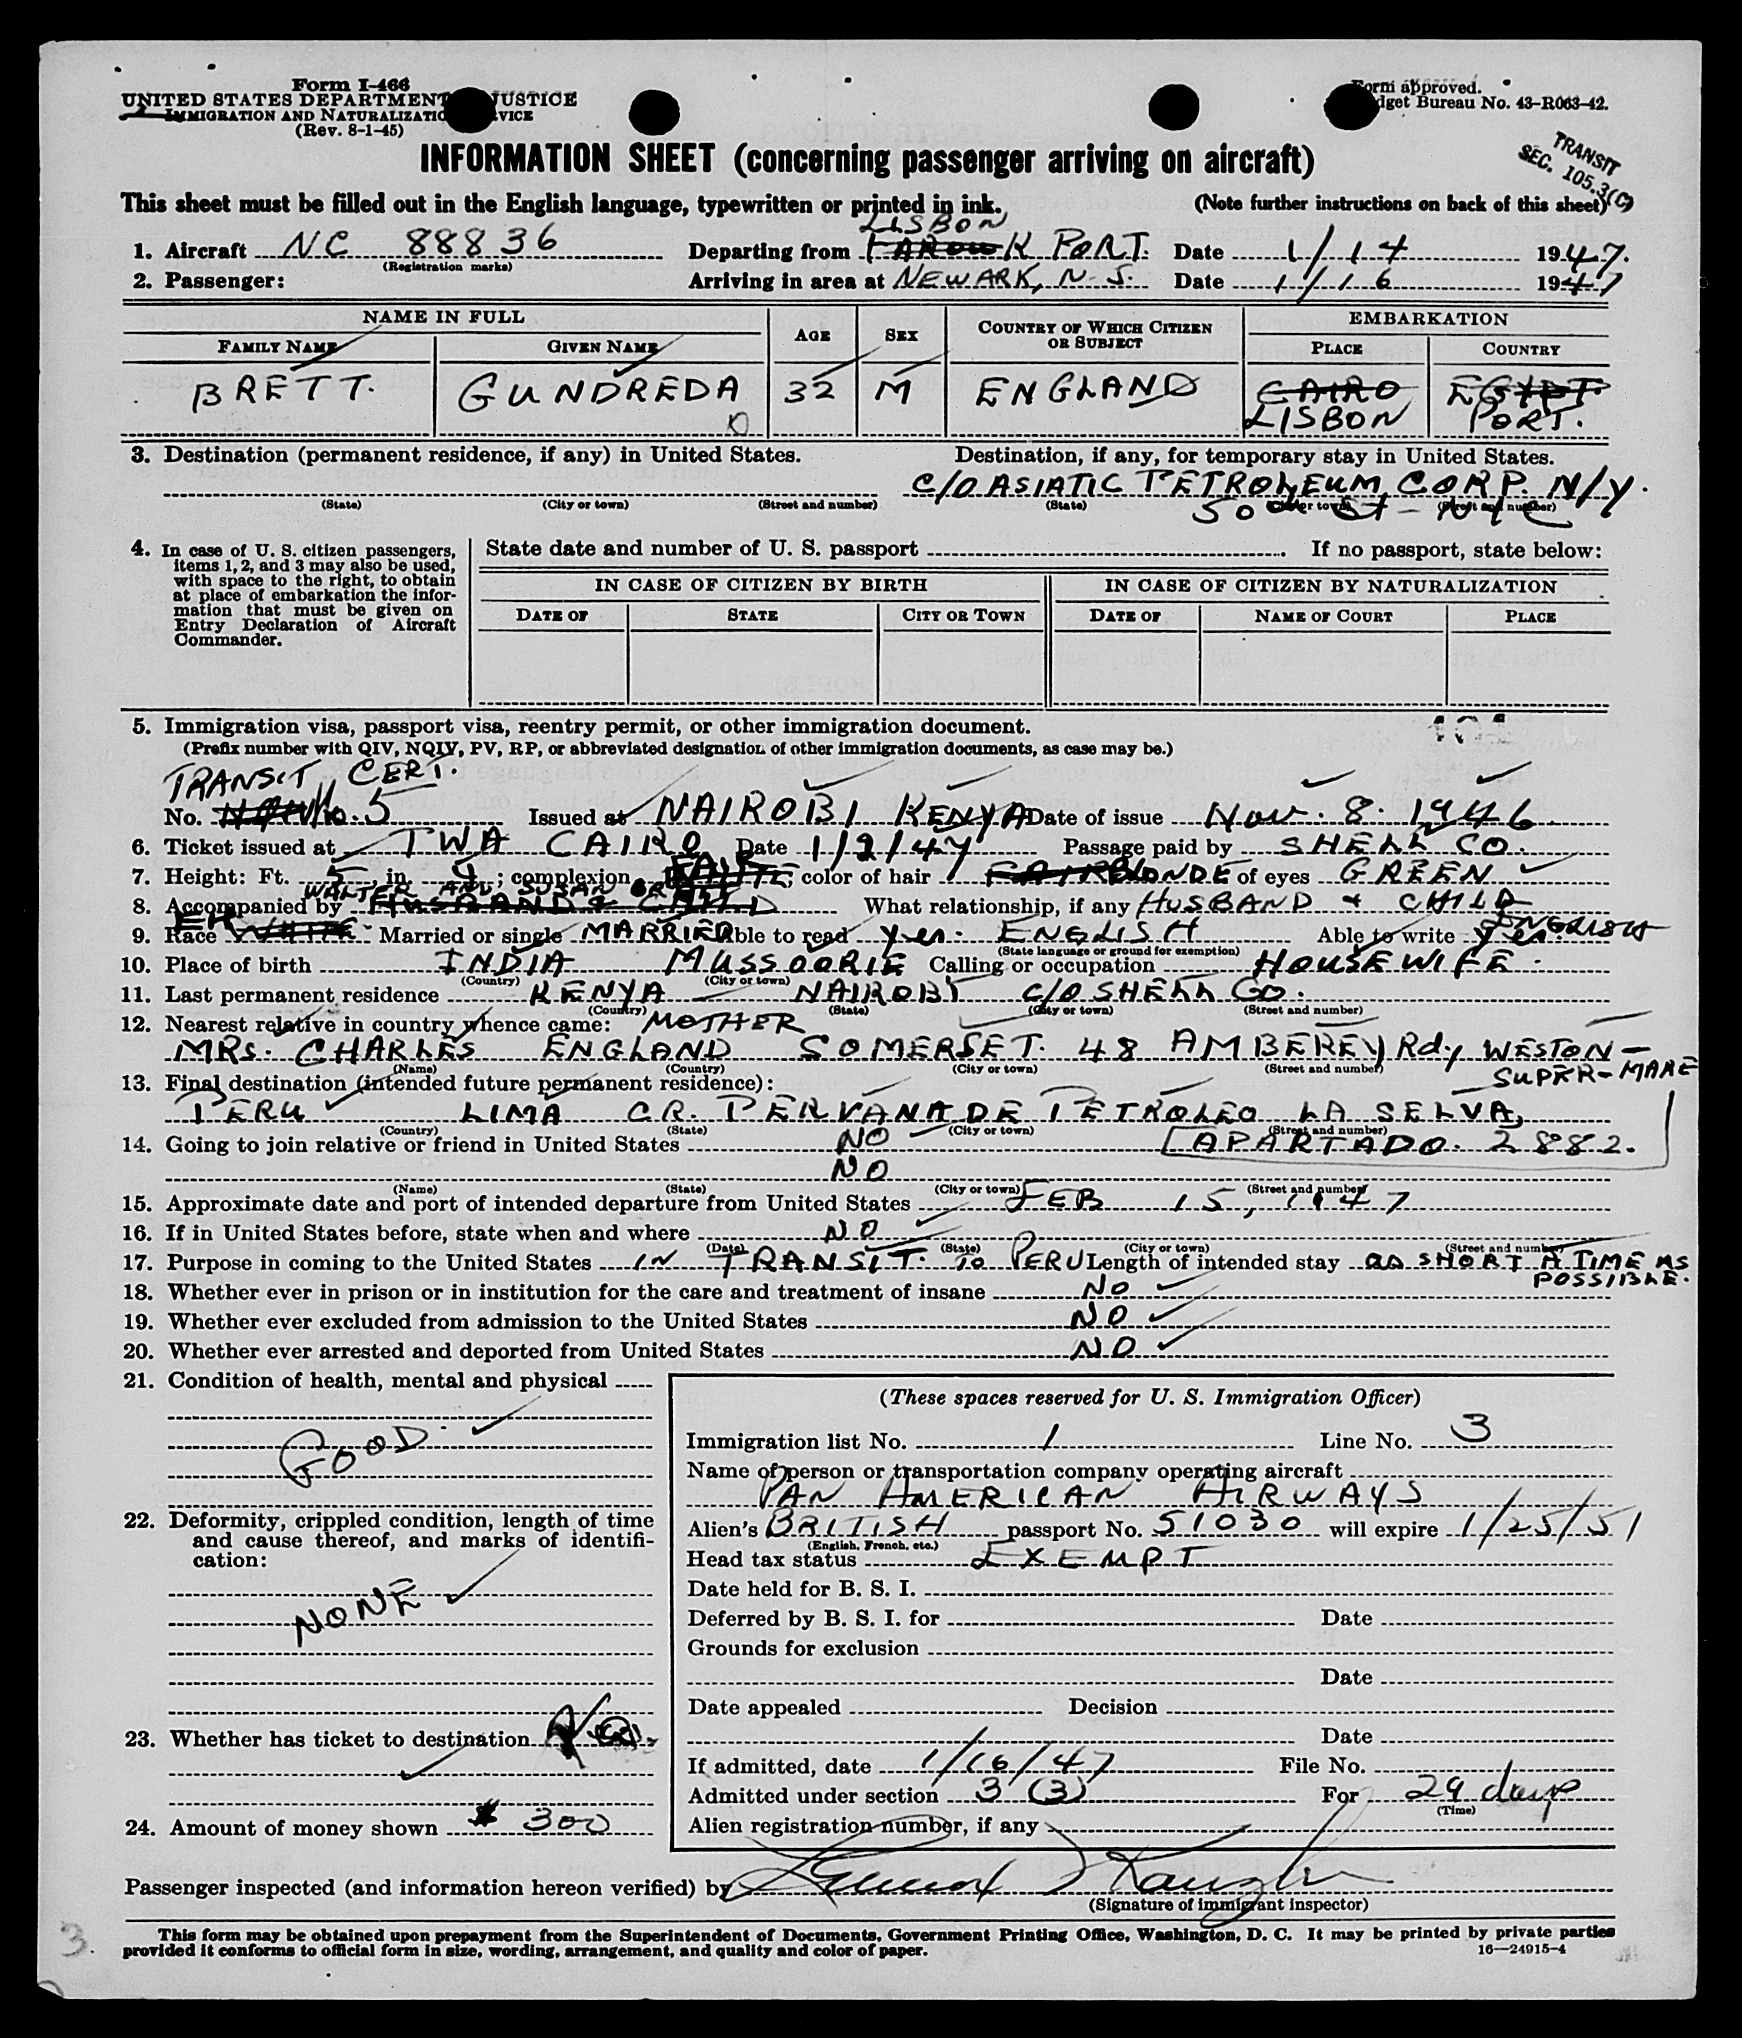 Form I-466
UNITED STATES DEPARTMENT JUSTICE
IMMIGRATION AND NATURALIZATION SERVICE
(Rev. 8-1-45)
Form approved.
Budget Bureau No. 43-R063-42.
TRANSIT
SEC. 105.3(C)
INFORMATION SHEET (concerning passenger arriving on aircraft)
This sheet must be filled out in the English language, typewritten or printed in ink. (Note further instructions on back of this sheet)
LISBON
1. Aircraft NC 88836 Departing from PORT. Date 1/14 1947.
(Registration marks)
2. Passenger: Arriving in area at NEWARK, N.J. Date 1/16 1947
NAME IN FULL AGE SEX COUNTRY OF WHICH CITIZEN OR SUBJECT EMBARKATION
FAMILY NAME GIVEN NAME PLACE COUNTRY
BRETT. GUNDREDA 32 M ENGLAND CAIRO EGYPT
LISBON PORT.
3. Destination (permanent residence, if any) in United States. Destination, if any, for temporary stay in United States.
C/O ASIATIC PETROLEUM CORP. N/Y.
(State) (City or town) (Street and number) (State) (City or town) (Street and number)
50th St - NYC
4. In case of U. S. citizen passengers, items 1, 2, and 3 may also be used, with space to the right, to obtain at place of embarkation the information that must be given on Entry Declaration of Aircraft Commander.
State date and number of U. S. passport . If no passport, state below:
IN CASE OF CITIZEN BY BIRTH IN CASE OF CITIZEN BY NATURALIZATION
DATE OF STATE CITY OR TOWN DATE OF NAME OF COURT PLACE
5. Immigration visa, passport visa, reentry permit, or other immigration document.
(Prefix number with QIV, NQIV, PV, RP, or abbreviated designation of other immigration documents, as case may be.)
TRANSIT CERT.
No. No. 5 Issued at NAIROBI KENYA Date of issue Nov. 8. 1946.
6. Ticket issued at TWA CAIRO Date 1/2/47 Passage paid by SHELL CO.
7. Height: Ft. 5, in. 4; complexion FAIR; color of hair BLONDE of eyes GREEN
WALTER AND SUSAN BRETT
8. Accompanied by HUSBAND & CHILD What relationship, if any HUSBAND + CHILD
9. Race WHITE Married or single MARRIED Able to read yes. ENGLISH Able to write yes. ENGLISH
(State language or ground for exemption)
10. Place of birth INDIA MUSSOORIE Calling or occupation HOUSEWIFE.
(Country) (City or town)
11. Last permanent residence KENYA NAIROBI C/O SHELL CO.
(Country) (State) (City or town) (Street and number)
12. Nearest relative in country whence came: MOTHER
MRS. CHARLES ENGLAND SOMERSET. 48 AMBEREY Rd, WESTON-
SUPER-MARE
(Name) (Country) (City or town) (Street and number)
13. Final destination (intended future permanent residence):
PERU LIMA PERVANA DE PETROLEO LA SELVA,
(Country) (State) (City or town) (Street and number)
14. Going to join relative or friend in United States NO APARTADO. 2882.
NO
(Name) (State) (City or town) (Street and number)
15. Approximate date and port of intended departure from United States FEB 15, 1947
16. If in United States before, state when and where NO
(Date) (State) (City or town) (Street and number)
17. Purpose in coming to the United States IN TRANSIT. TO PERU Length of intended stay AS SHORT A TIME AS
POSSIBLE.
18. Whether ever in prison or in institution for the care and treatment of insane NO
19. Whether ever excluded from admission to the United States NO
20. Whether ever arrested and deported from United States NO
21. Condition of health, mental and physical
GOOD
22. Deformity, crippled condition, length of time and cause thereof, and marks of identification:
NONE
23. Whether has ticket to destination
24. Amount of money shown $ 300
(These spaces reserved for U. S. Immigration Officer)
Immigration list No. 1 Line No. 3
Name of person or transportation company operating aircraft
PAN AMERICAN AIRWAYS
Alien's BRITISH passport No. 51030 will expire 1/25/51
(English, French, etc.)
Head tax status EXEMPT
Date held for B. S. I.
Deferred by B. S. I. for Date
Grounds for exclusion
Date
Date appealed Decision
Date
If admitted, date 1/16/47 File No.
Admitted under section 3 (3) For 29 days
(Time)
Alien registration number, if any
Passenger inspected (and information hereon verified) by
(Signature of immigrant inspector)
This form may be obtained upon prepayment from the Superintendent of Documents, Government Printing Office, Washington, D. C. It may be printed by private parties
provided it conforms to official form in size, wording, arrangement, and quality and color of paper.
16—24915-4
3.